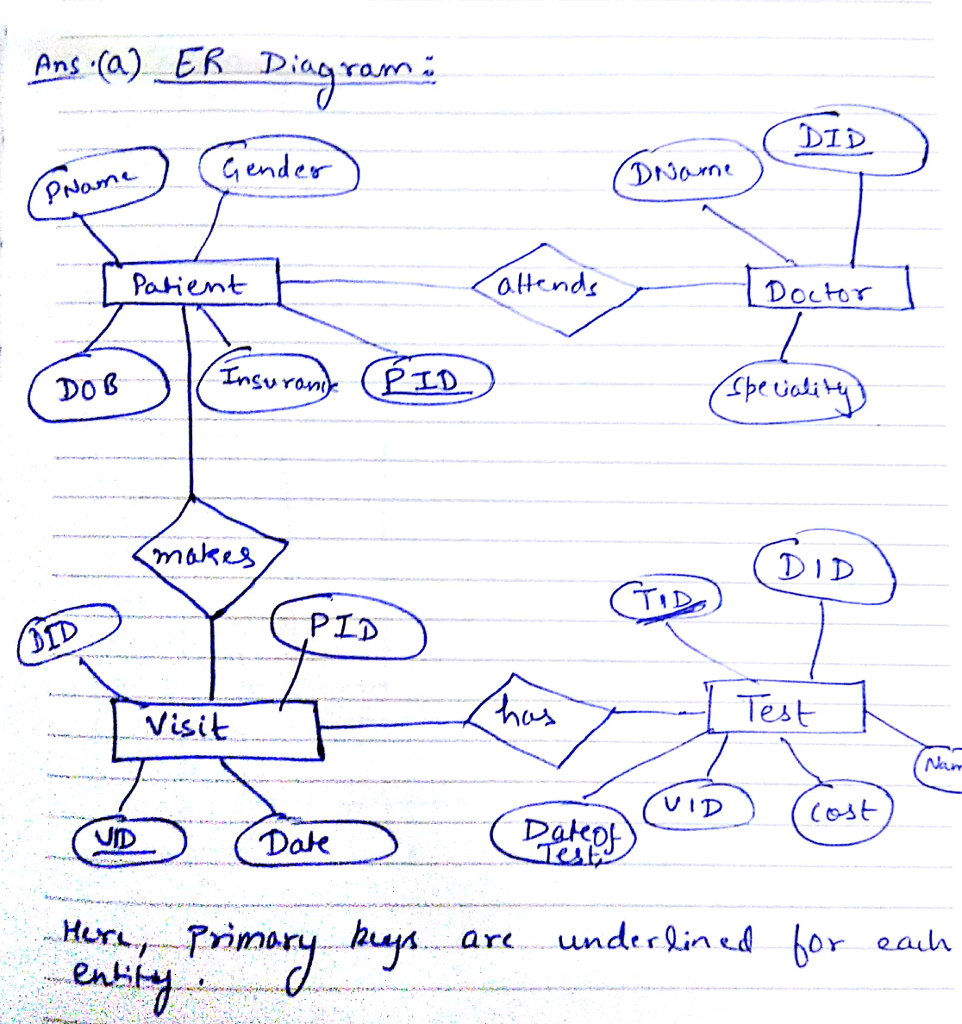 Ans.(a) ER Diagram:
PName Gender DName DID
Patient attends Doctor
DOB Insurance PID Speciality
makes
DID PID TID DID
Visit has Test
Nam
VID Date Date of Test VID Cost
Here, Primary keys are underlined for each
entity.